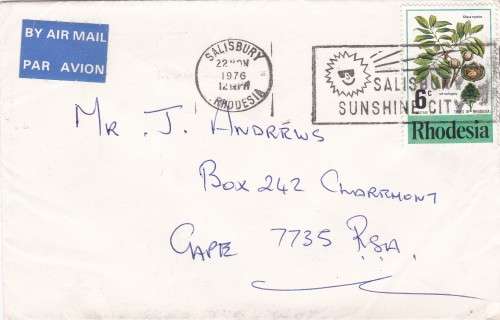 BY AIR MAIL
PAR AVION
SALISBURY
22 NOV
1976
RHODESIA
SALIS
SUNSHINE CITY
6c
Rhodesia
Mr J. Andrews
Box 242 Claremont
Cape 7735 RSA